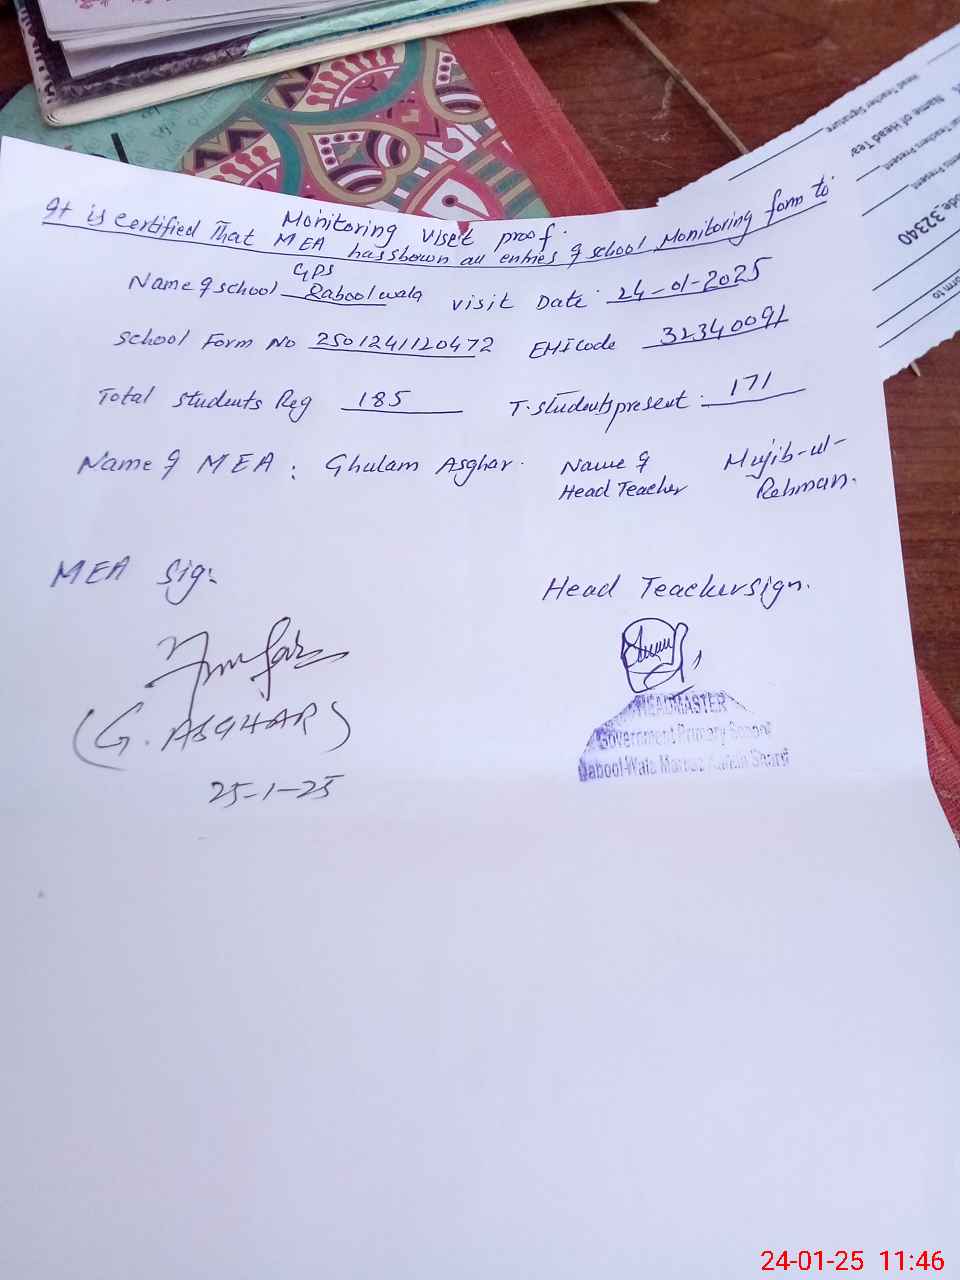 Monitoring visit proof.
It is certified That MEA has shown all entries of school Monitoring form to.
Name of school GPS Baboolwala visit Date: 24-01-2025
School Form No 2501241120472 EMIcode 32340091
Total students Reg 185 T.students present: 171
Name of MEA: Ghulam Asghar. Name of Head Teacher Mujib-ul-Rehman.
MEA Sig: Head Teacher sign.
(G. ASGHAR)
25-1-25
HEADMASTER
Government Primary School
Babool-Wala Markaz
Head Teacher Signature
Name of Head Tea
32340
orm to
24-01-25 11:46